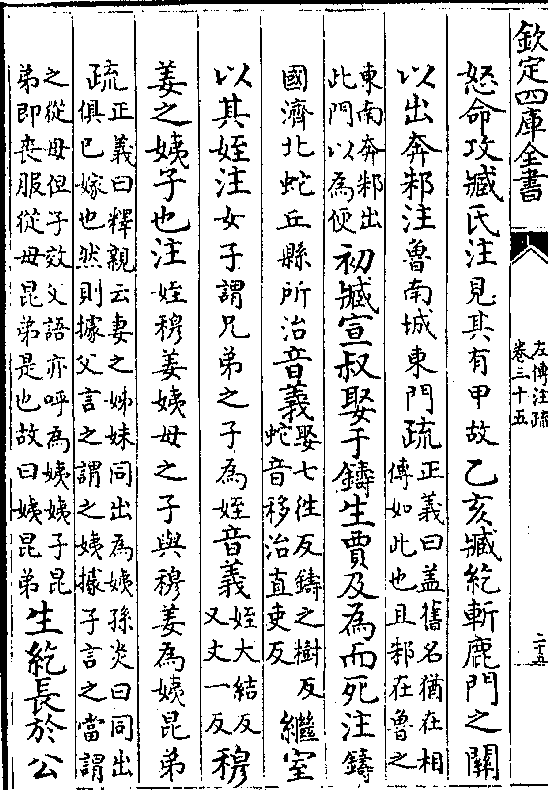 欽定四庫全書
左傳注疏
卷三十五
二十五
怒命攻臧氏注見其有甲故乙亥臧紇斬鹿門之關
以出奔邾注魯南城東門疏正義曰蓋舊名猶在相
傳如此也且邾在魯之
東南奔邾出
此門以為便初臧宣叔娶于鑄生賈及為而死注鑄
國濟北蛇丘縣所治音義娶七住反鑄之樹反
蛇音移治直吏反繼室
以其姪注女子謂兄弟之子為姪音義姪大結反
又丈一反穆
姜之姨子也注姪穆姜姨母之子與穆姜為姨昆弟
疏正義曰釋親云妻之姊妹同出為姨孫炎曰同出
俱已嫁也然則據父言之謂之姨據子言之當謂
之從母但子效父語亦呼為姨姨子昆
弟即喪服從母昆弟是也故曰姨昆弟生紇長於公